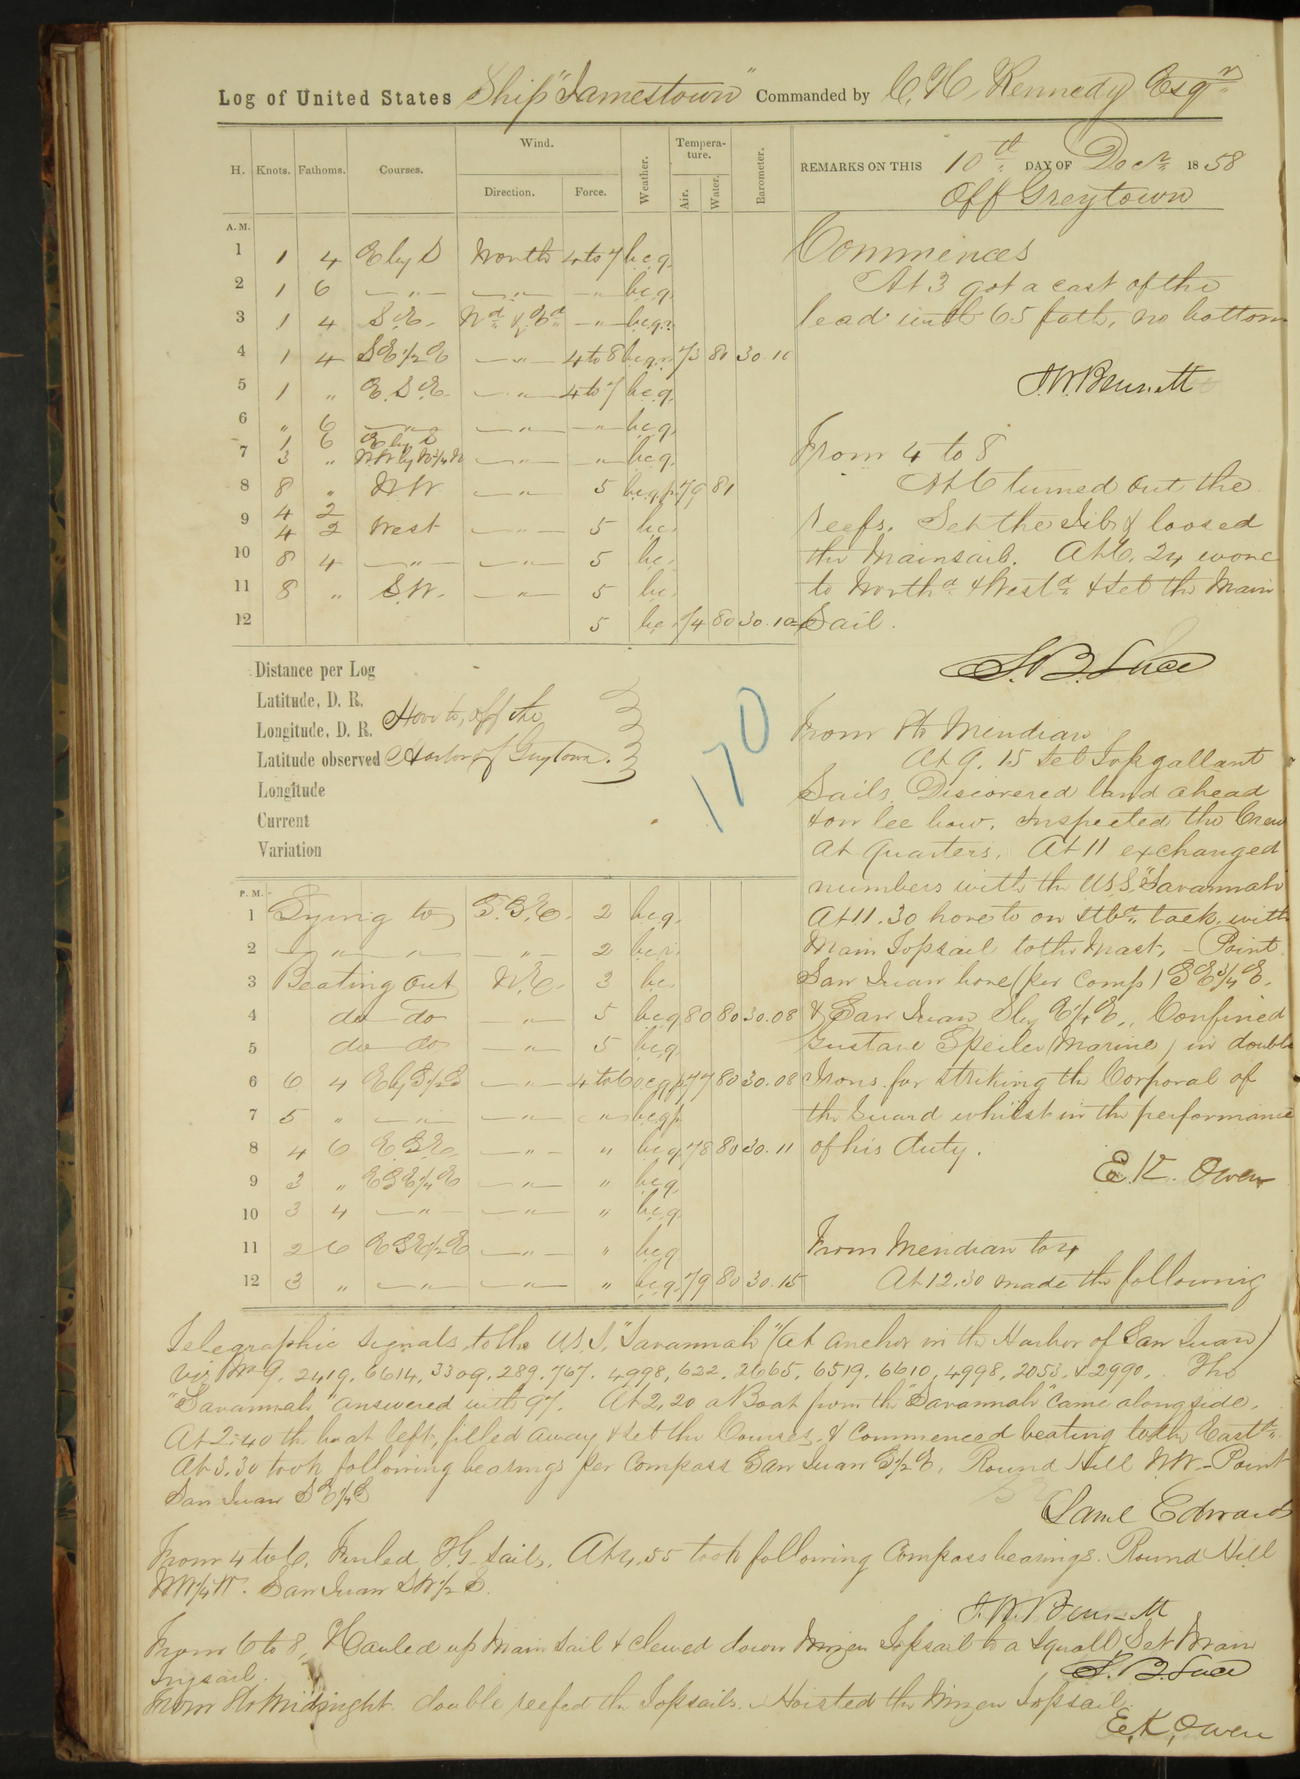 Log of United States Ship "Jamestown" Commanded by C. H. Kennedy Esqr
H. Knots. Fathoms. Courses. Wind. Direction. Force. Weather. Temperature. Air. Water. Barometer.
REMARKS ON THIS 10th DAY OF Decr 1858
Off Greytown
A.M.
1 1 4 E by S North 4 to 7 b.c.q.
2 1 6 — " — — " — — " — b.c.q.
3 1 4 S.E. Nd & Ed — " — b.c.q.
4 1 4 SE 1/2 E — " — 4 to 8 73 80 30.10
5 1 " E.S.E. — " — 4 to 7 b.c.q.
6 " 6 — " — — " — — " — b.c.q.
1 6 E by S
7 3 " — " — — " — b.c.q.
8 8 " N.W. — " — 5 b.c.q.p. 79 81
4 2
9 4 2 West — " — 5 b.c.
10 8 4 — " — — " — 5 b.c.
11 8 " S.W. — " — 5 b.c.
12 5 b.c. 74 80 30.10
Commences
At 3 got a cast of the
lead with 65 fath, no bottom
From 4 to 8
At 6 turned out the
reefs. Set the Jib & loosed
the Mainsail. At 6.24 wore
to Northd & Westd & set the Main
Sail.
S. B. Luce
Distance per Log
Latitude, D. R.
Longitude, D. R.
Latitude observed
Longitude
Current
Variation
Hove to, off the
Harbor of Greytown.
170
From 8 to Meridian
At 9.15 set Topgallant
Sails. Discovered land ahead
& on lee bow. Inspected the Crew
at quarters. At 11 exchanged
numbers with the U.S.S. "Savannah"
At 11.30 hove to on stbd tack, with
Main Topsail to the Mast, - Point
San Juan bore (per comp) SE 3/4 E.
& San Juan S by E 1/4 E. Confined
Gustave Speiler (Marine) in double
Irons for striking the Corporal of
the Guard whilst in the performance
of his duty.
E. K. Owen
P.M.
1 Lying to S.S.E. 2 b.c.q.
2 — " — " — — " — 2
3 Beating out N.E. 3 b.c.
4 do do — " — 5 b.c.q. 80 80 30.08
5 do do — " — 5 b.c.q.
6 6 4 E by S 1/2 S — " — 4 to 6 77 80 30.08
7 5 " — " — — " — " b.c.q.p.
8 4 6 E.S.E. — " — " b.c.q. 78 80 30.11
9 3 " ESE 1/4 E — " — " b.c.q.
10 3 4 — " — — " — " b.c.q.
11 2 6 ESE 1/2 E — " — " b.c.q.
12 3 " — " — — " — " b.c.q. 79 80 30.15
From Meridian to 4
At 12.30 made the following
Telegraphic signals to the U.S.S. "Savannah" (at anchor in the Harbor of San Juan)
viz 9, 2419, 6614, 3309, 289, 767, 4998, 622, 2665, 6519, 6610, 4998, 2053, & 2990. The
"Savannah" answered with 97. At 2.20 a Boat from the "Savannah" came alongside.
At 2:40 the boat left, filled away & set the Courses, & commenced beating to the Eastd.
At 3.30 took following bearings per Compass San Juan S 1/2 E, Round Hill NW - Point
San Juan SE 1/4 S
Saml Edwards
From 4 to 6. Furled T.G. Sails. At 4.55 took following Compass bearings. Round Hill
San Juan SW 1/2 S.
From 6 to 8, Hauled up Main sail & clewed down Mizen Topsail to a squall. Set Main
Trysail.
S. B. Luce
From 8 to Midnight. double reefed the Topsails. Hoisted the Mizen Topsail.
E. K. Owen